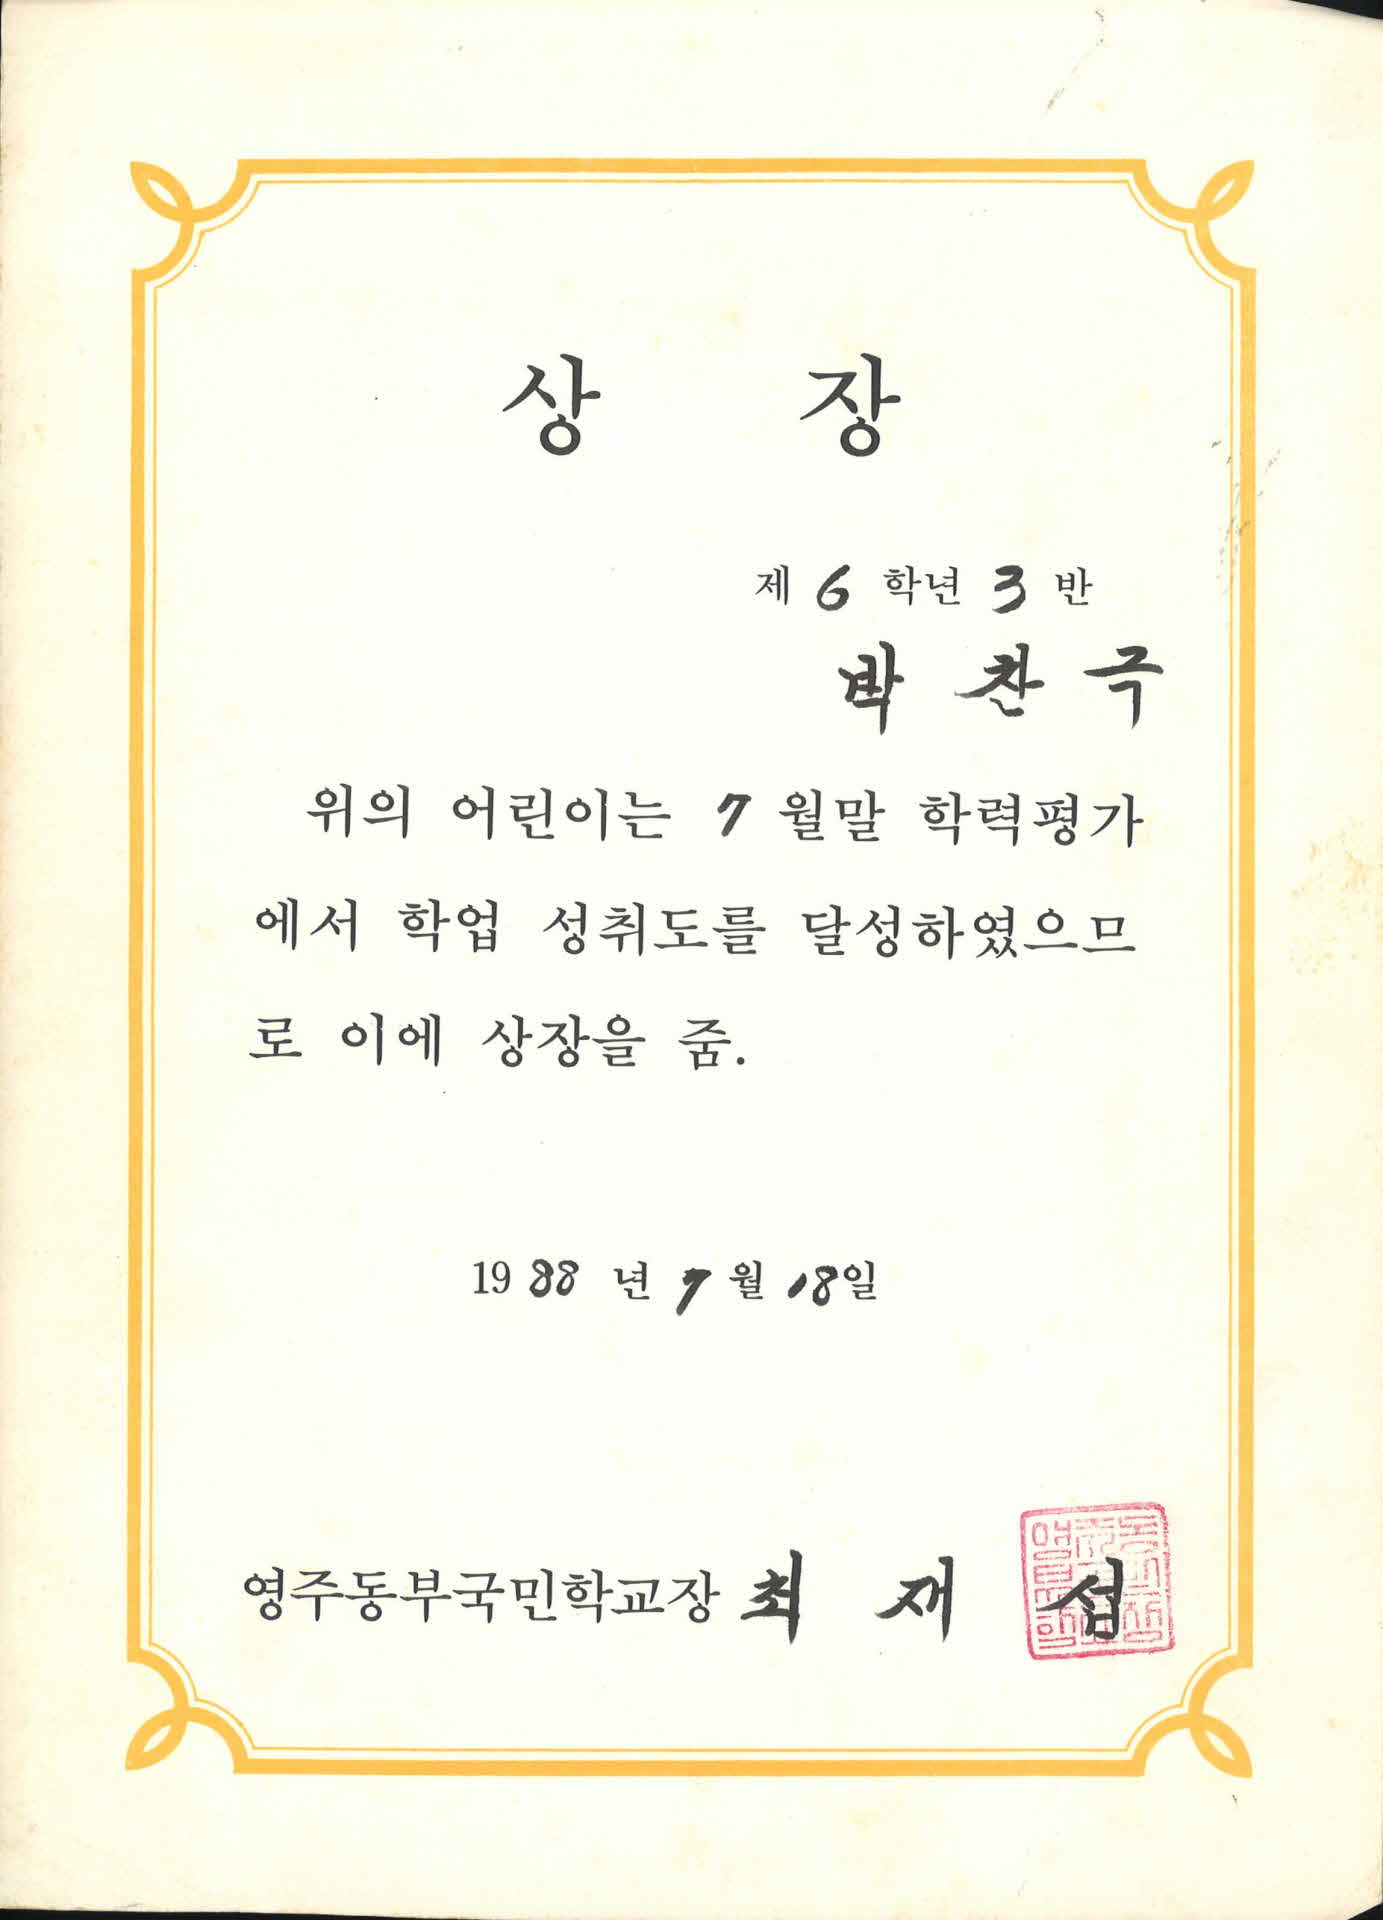 상 장
제 6 학년 3 반
박 찬 극
위의 어린이는 7 월말 학력평가
에서 학업 성취도를 달성하였으므
로 이에 상장을 줌.
1988 년 7 월 18일
영주동부국민학교장 최 재 섭